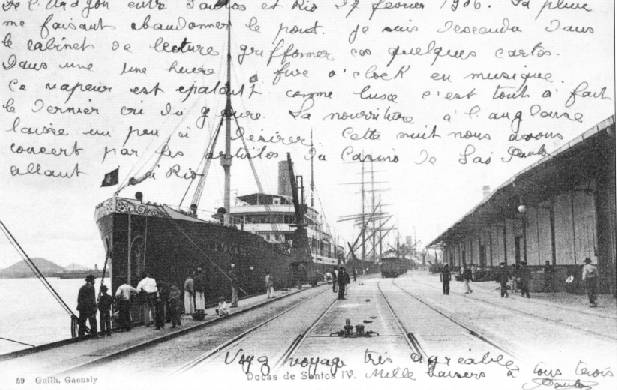 De l'Avon entre Santos et Rio 17 février 1906. La pluie
me faisant abandonner le pont. je suis descendu dans
le cabinet de lecture griffonner ces quelques cartes.
Dans une heure à five o'clock en musique.
Ce vapeur est épatant comme luxe c'est tout à fait
le dernier cri du genre. La nourriture à l'anglaise
laisse un peu à désirer. Cette nuit nous avons
concert par les artistes du Casino de São Paulo
allant à Rio
59 Guilh. Gaensly
Docas de Santos IV.
voyage très agréable
Mille baisers à tous trois